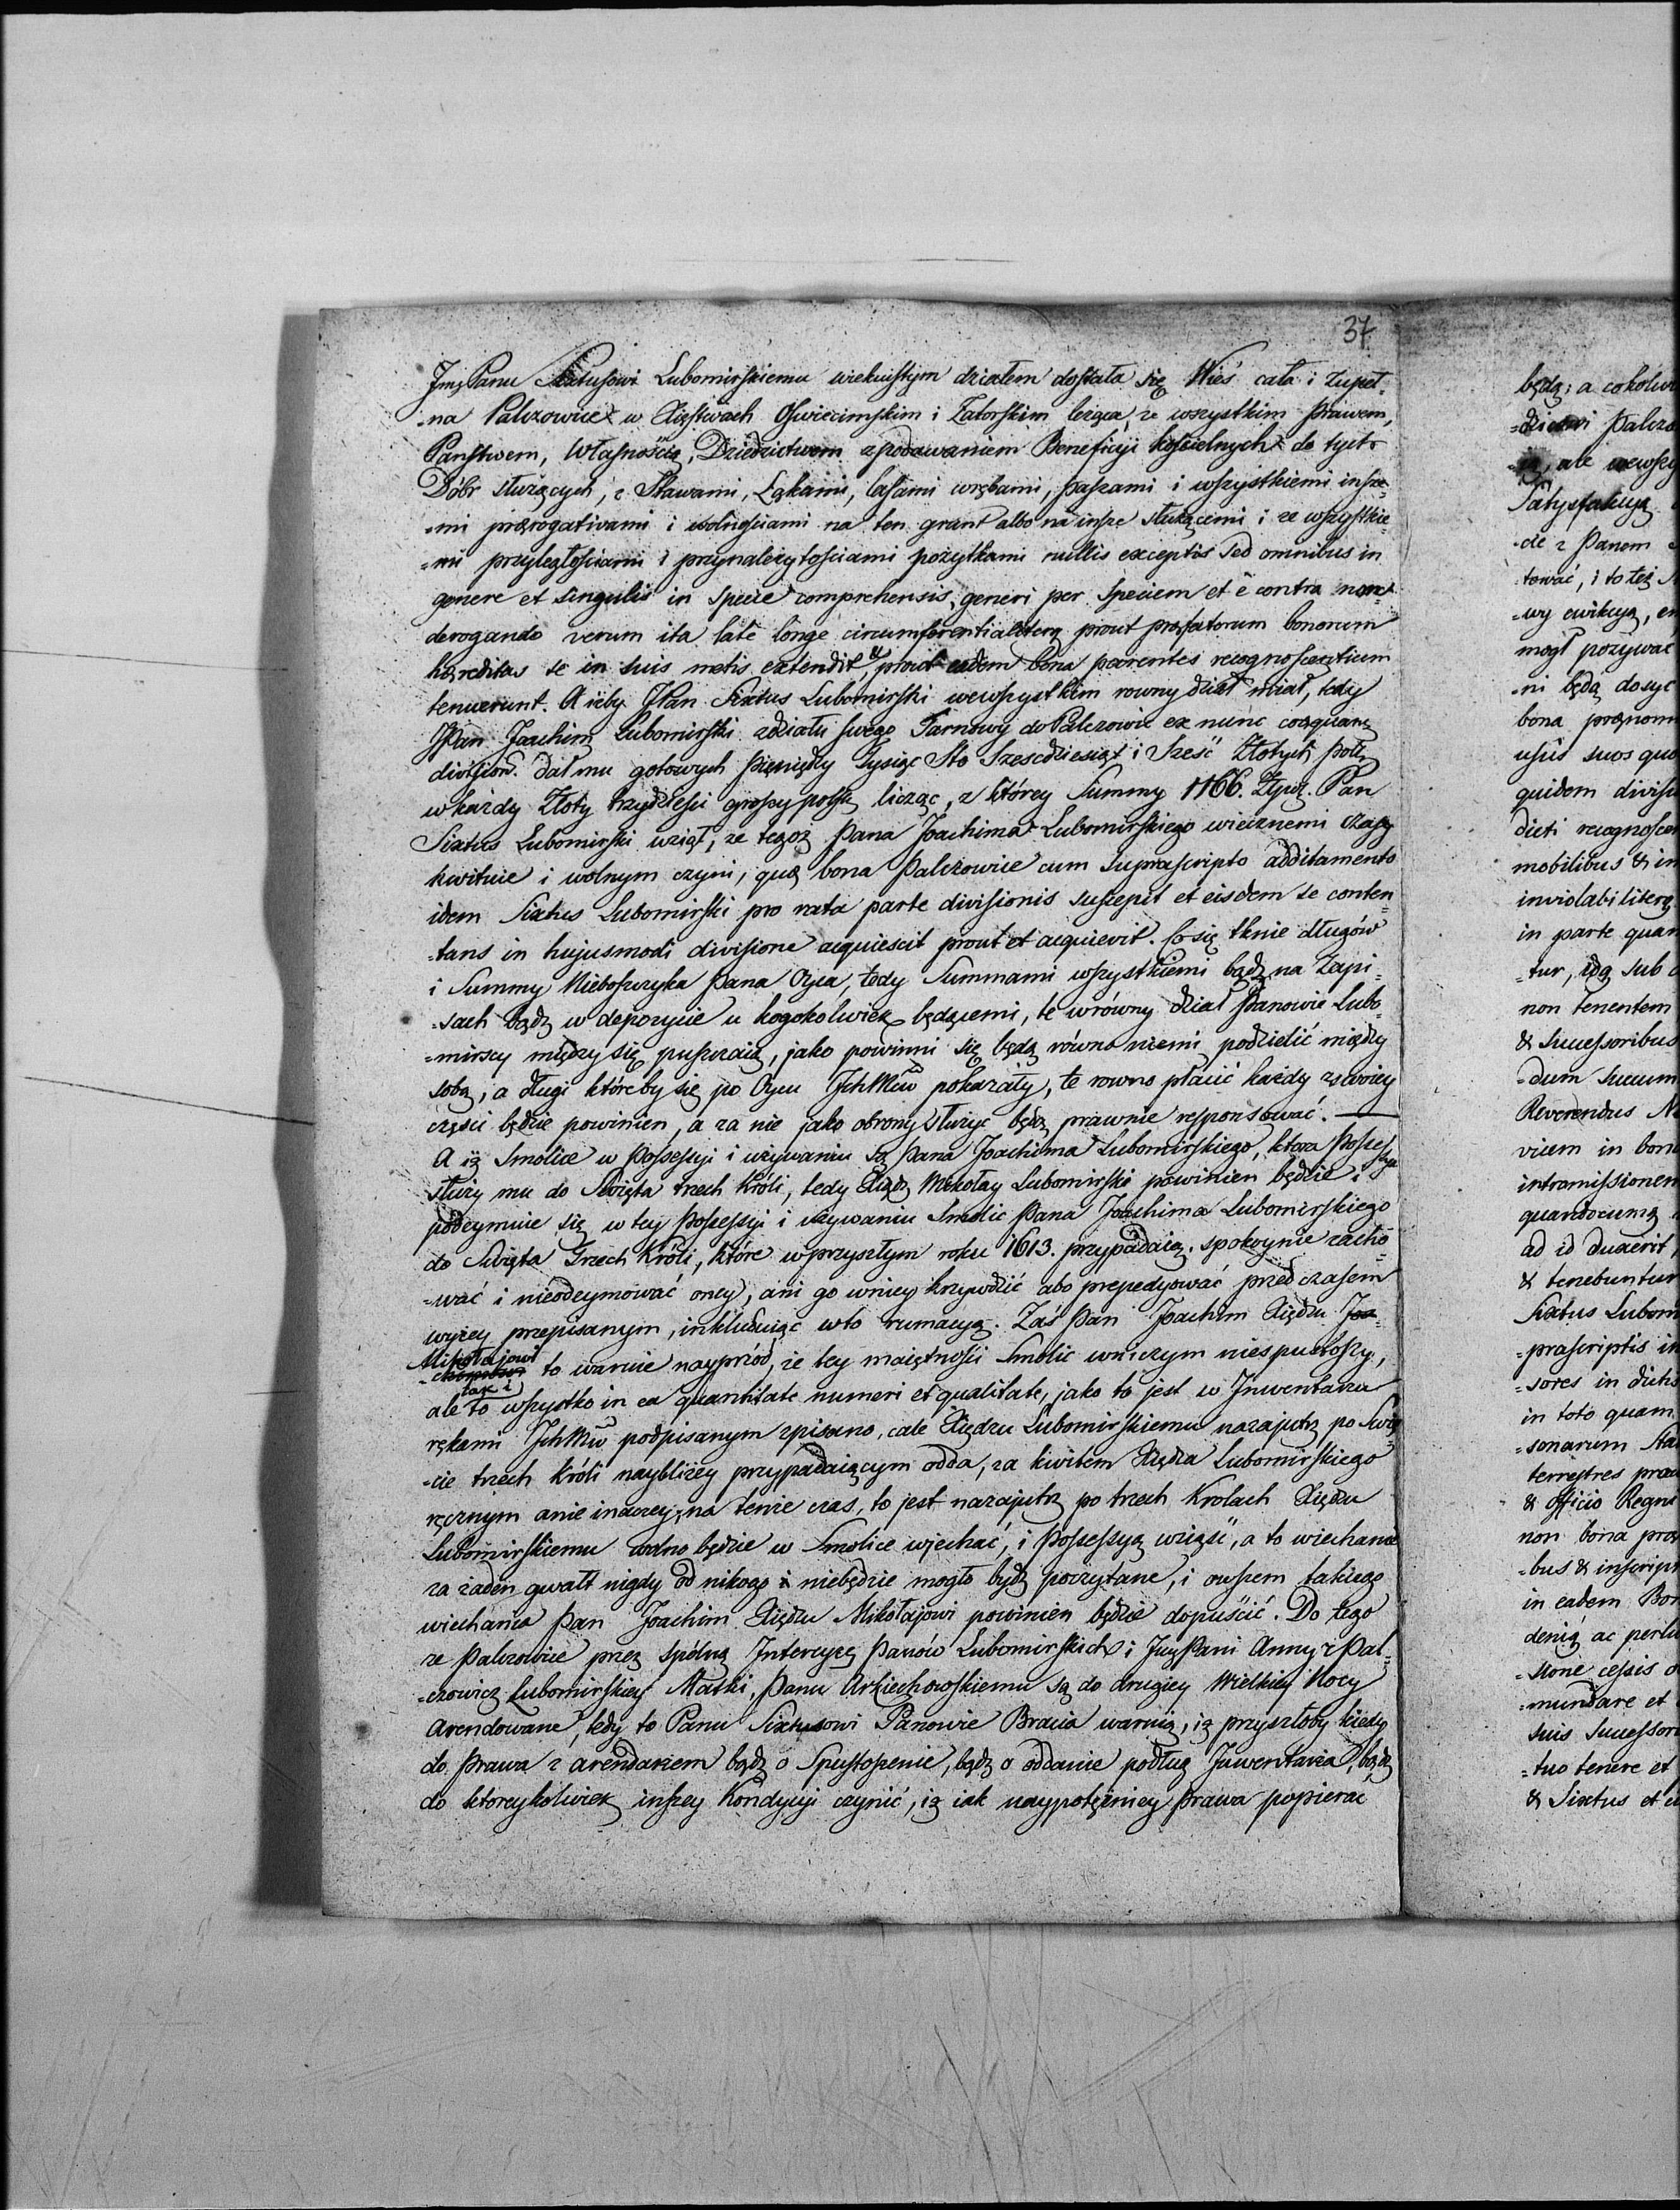 37
JmęPanu Sixtusowi Lubomirskiemu wiekuistym działem dostała się Wieś cała i zupeł-
-na Palczowice w Xięstwach Oswiecimskim i Zatorskim leżąca, ze wszystkim Prawem,
Państwem, Własnością, Dziedzictwem z podawaniem Beneficyi kościelnych do tych
Dóbr służących, z Stawami, Łąkami, lasami wrębami, paszami i wszystkiemi insze-
-mi prærogativami i wolnościami na ten grunt albo na insze służącemi i ze wszystkie-
=mi przyległościami i przynależytościami pożytkami nullis exceptis sed omnibus in
genere et singulis in specie comprehensis, generi per speciem et è contra non
derogando verum ita latè longe circumferentialiterq prout præfatorum bonorum
hæreditas se in suis metis extendit, & prout eadem bona parentes recognoscentium
tenuerunt. A iżby JPan Sixtus Lubomirski wewszystkim rowny dział miał, tedy
JPan Joachim Lubomirski zdziału swego Tarnowy do Palczowic ex nunc coæquanę
division. dał mu gotowych pieniędzy Tysiąc Sto Szescdziesiąt i Sześć Złotych Polsk
w każdy Złoty trzydzieści groszy polsk licząc, z którey Summy 1166. Złpol. Pan
Sixtus Lubomirski wziął, ze tegoż Pana Joachima Lubomirskiego wiecznemi czasy
kwituie i wolnym czyni, quę bona Palczowice cum suprascripto additamento
idem Sixtus Lubomirski pro rata parte divisionis suscepit et eisdem se conten-
-tans in hujusmodi divisione acquiescit prout et acquievit. Co się tknie długów
i Summy Nieboszczyka Pana Oyca, tedy Summami wszystkiemi bądz na Zapi-
-sach bądz w depozycie u kogokolwiek będącemi, te w równy dział Panowie Lubo-
-mirscy między się puszczaią, jako powinni się będą równo niemi podzielić między
sobą, a długi któreby się po Oycu JchMciów pokazały, te rowno płacić każdy z swoiey
części będzie powinien, a za nie jako obrony służyc będą prawnie responsować. —
A iż Smolice w Possessyi i używaniu są Pana Joachima Lubomirskiego, ktora Possessya
służy mu do Swięta trzech Króli, tedy Xiądz Mikołay Lubomirski powinien będzie i
podeymuie się w tey Possessyi i używaniu Smolic Pana Joachima Lubomirskiego
do Swięta Trzech Króli, które wprzyszłym roku 1613. przypadaią. spokoynie zacho-
-wać i nieodeymować oney, ani go wniey krzywdzić abo prepedyować przed czasem
wyżey przepisanym, inkluduiąc wto rumacyą. Zaś Pan Joachim Xiędzu Joa-
Mikołajowi to waruie nayprzód, że tey maiętności Smolic wniczym niespustoszy,
tak i
ale to wszystko in ea quantitate numeri et qualitate, jako to jest w Jnwentarzu
rękami JchMciów podpisanym zpisano, cale Xiędzu Lubomirskiemu nazajutrz po Swię-
-cie trzech Króli naybliżey przypadaiącym odda, za kwitem Xiędza Lubomirskiego
ręcznym anie inaczey, na tenże czas, to jest nazajutrz po trzech Krolach Xiędzu
Lubomirskiemu wolno będzie w Smolice wjechać, i Possessyą wziąść, a to wiechanie
za żaden gwałt nigdy od nikogo niebędzie mogło bydz poczytane, i owszem takiego
wiechania Pan Joachim Xiędzu Mikołajowi powinien będzie dopuścić. Do tego
ze Palczowice przez spólną Intercyzę Panów Lubomirskich i JmPani Anny z Pal-
-czowicz Lubomirskiey Matki, Panu Arciechowskiemu są do drugiey Wielkiey Nocy
Arendowane, tedy to Panu Sixtusowi Panowie Bracia warują, iż przyszłoby kiedy
do Prawa z arendarzem bądz o Spustoszenie, bądz o oddanie podług Jnwentarza, bądz
do ktoreykolwiek inszey Kondycyi czynić, iż iak naypotężniey Prawa popierac
będą; a cokolwi
-dzicowi Palczo
ale wewszy
Satysfakcyą
-cie z Panem
-tować, i to też
-wy ewikcyą, en
mogł pozywac
-ni będą dosyc
bona prænom
usus suos quo
quidem divisi
dicti recognoscen
mobilibus & im
inviolabiliterq
in parte quan
=tur, idq sub
non tenentem
& Successoribus
-dum succum
Reverendus N
vicem in bon
intromissionem
quandocunq
ad id duxerit,
& tenebuntur
Sixtus Lubom
=præscriptis in
=sores in dictis
in toto quam
=sonarum Sta
terrestres præ
& officio Regni
non bona præ
-bus & inscript
in eadem Bon
deniq ac perlu
-sione cessis
=mundare et
suis Successori
=tuo tenere et
& Sixtus et